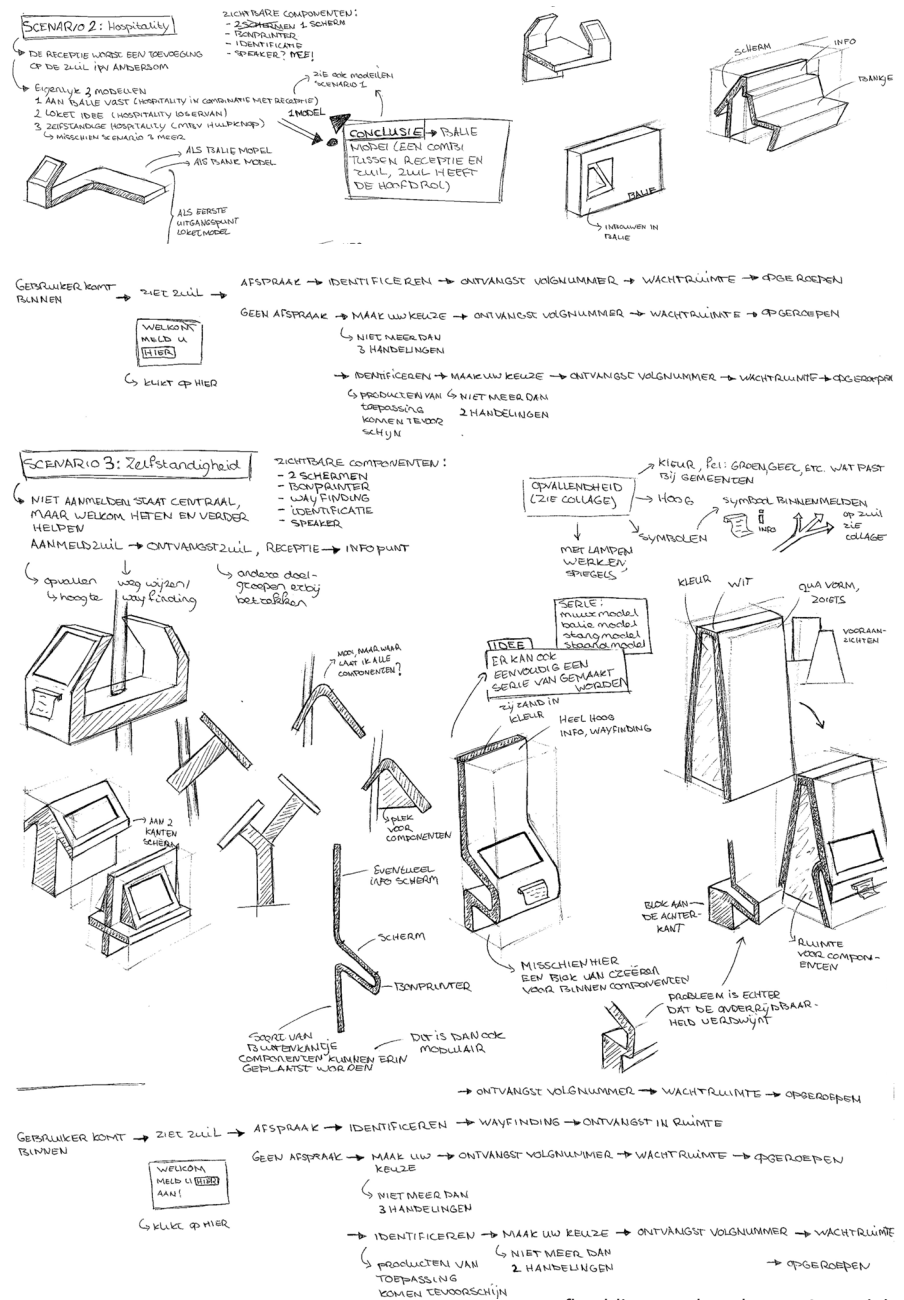 SCENARIO 2: Hospitality
DE RECEPTIE WORDT EEN TOEVOEGING
OP DE ZUIL IPV ANDERSOM
Eigenlijk 3 MODELLEN
1 AAN BALIE VAST (HOSPITALITY IN COMBINATIE MET RECEPTIE)
2 LOKET IDEE (HOSPITALITY LOS ERVAN)
3 ZELFSTANDIGE HOSPITALITY (MTBV HULPKNOP)
MISSCHIEN SCENARIO 3 MEER
ALS BALIE MODEL
ALS BANK MODEL
ALS EERSTE
UITGANGSPUNT
LOKETMODEL
ZICHTBARE COMPONENTEN:
- 2 SCHERMEN 1 SCHERM
- BONPRINTER
- IDENTIFICATIE
- SPEAKER? NEE!
ZIE OOK MODELLEN
SCENARIO 1
1 MODEL
CONCLUSIE → BALIE
MODEL (EEN COMBI
TUSSEN RECEPTIE EN
ZUIL, ZUIL HEEFT
DE HOOFDROL)
SCHERM
INFO
BANKJE
BALIE
INBOUWEN IN
BALIE
GEBRUIKER KOMT
BINNEN
→ ZIET ZUIL →
WELKOM
MELD U
HIER
KLIKT OP HIER
AFSPRAAK → IDENTIFICEREN → ONTVANGST VOLGNUMMER → WACHTRUIMTE → OPGEROEPEN
GEEN AFSPRAAK → MAAK UW KEUZE → ONTVANGST VOLGNUMMER → WACHTRUIMTE → OPGEROEPEN
NIET MEER DAN
3 HANDELINGEN
→ IDENTIFICEREN → MAAK UW KEUZE → ONTVANGST VOLGNUMMER → WACHTRUIMTE → OPGEROEPEN
PRODUCTEN VAN
toepassing
KOMEN TEVOOR
SCHIJN
NIET MEER DAN
2 HANDELINGEN
SCENARIO 3: Zelfstandigheid
NIET AANMELDEN STAAT CENTRAAL,
MAAR WELKOM HETEN EN VERDER
HELPEN
AANMELDZUIL → ONTVANGSTZUIL, RECEPTIE → INFOPUNT
opvallen
hoogte
weg wijzen/
wayfinding
andere doel-
groepen erbij
betrekken
ZICHTBARE COMPONENTEN:
- 2 SCHERMEN
- BONPRINTER
- WAYFINDING
- IDENTIFICATIE
- SPEAKER
OPVALLENDHEID
(ZIE COLLAGE)
KLEUR, fel: GROEN, GEEL, ETC. WAT PAST
BIJ GEMEENTEN
HOOG
SYMBOLEN
SYMBOOL BINNENMELDEN
i
INFO
OP ZUIL
ZIE
COLLAGE
MET LAMPEN
WERKEN,
SPIEGELS
KLEUR
WIT
QUA VORM,
ZOIETS
VOORAAN-
ZICHTEN
MOOI, MAAR WAAR
LAAT IK ALLE
COMPONENTEN?
SERIE:
muurmodel
balie model
stang model
staand model
IDEE
ER KAN OOK
EENVOUDIG EEN
SERIE VAN GEMAAKT
WORDEN
ZIJRAND IN
KLEUR
HEEL HOOG
INFO, WAYFINDING
AAN 2
KANTEN
SCHERM
PLEK
VOOR
COMPONENTEN
EVENTUEEL
INFO SCHERM
SCHERM
BONPRINTER
SOORT VAN
BUITENKANTJE
COMPONENTEN KUNNEN ERIN
GEPLAATST WORDEN
DIT IS DAN OOK
MODULAIR
MISSCHIEN HIER
EEN BLOK VAN CREËREN
VOOR BINNEN COMPONENTEN
BLOK AAN
DE ACHTER-
KANT
RUIMTE
VOOR COMPON-
ENTEN
PROBLEEM IS ECHTER
DAT DE ONDERRIJDBAAR-
HEID VERDWIJNT
→ ONTVANGST VOLGNUMMER → WACHTRUIMTE → OPGEROEPEN
GEBRUIKER KOMT
BINNEN
→ ZIET ZUIL → AFSPRAAK → IDENTIFICEREN → WAYFINDING → ONTVANGST IN RUIMTE
WELKOM
MELD U HIER
AAN!
KLIKT OP HIER
GEEN AFSPRAAK → MAAK UW
KEUZE
→ ONTVANGST VOLGNUMMER → WACHTRUIMTE → OPGEROEPEN
NIET MEER DAN
3 HANDELINGEN
→ IDENTIFICEREN → MAAK UW KEUZE → ONTVANGST VOLGNUMMER → WACHTRUIMTE
→ OPGEROEPEN
PRODUCTEN VAN
TOEPASSING
KOMEN TEVOORSCHIJN
NIET MEER DAN
2 HANDELINGEN